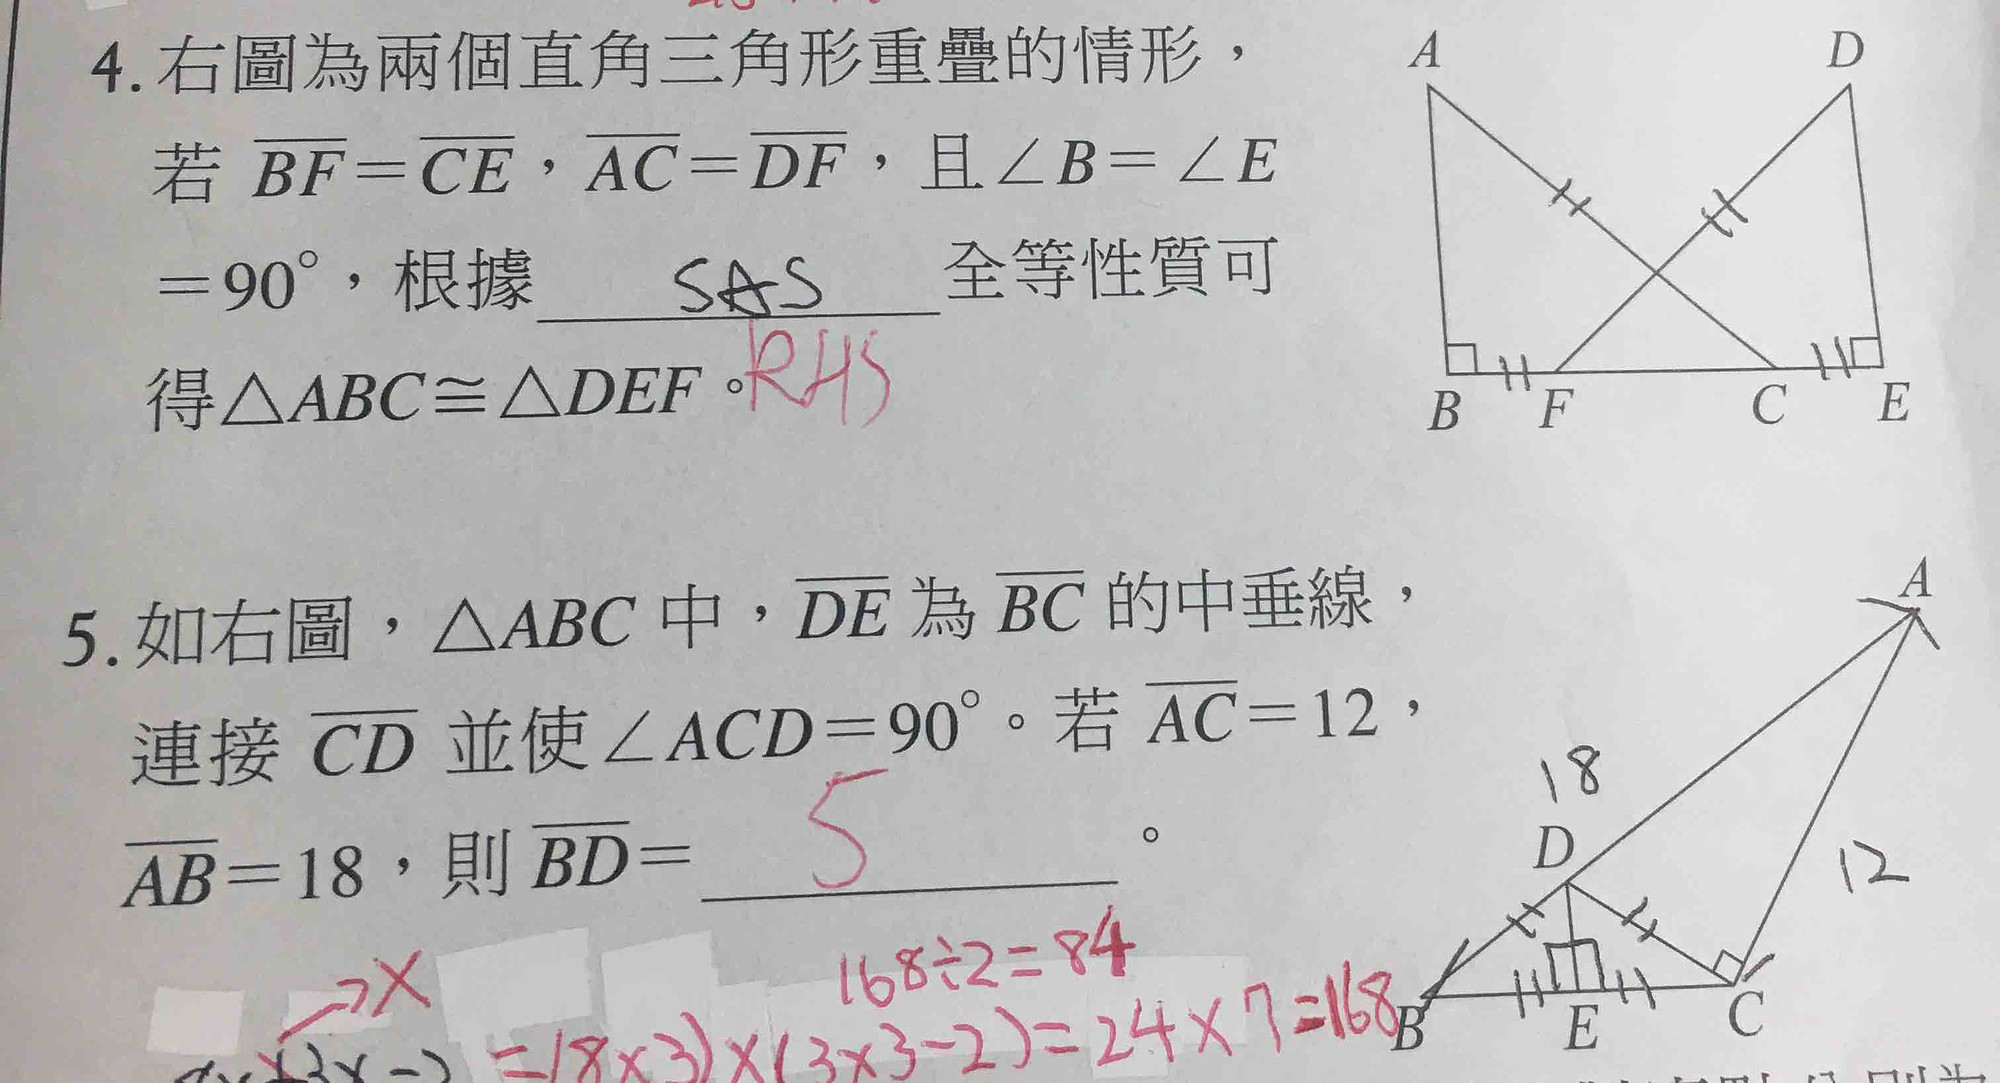 4. 右圖為兩個直角三角形重疊的情形，
若 BF＝CE，AC＝DF，且∠B＝∠E
＝90°，根據 SAS 全等性質可
得△ABC≅△DEF。RHS
A
D
B
F
C
E
5. 如右圖，△ABC 中，DE 為 BC 的中垂線，
連接 CD 並使∠ACD＝90°。若 AC＝12，
AB＝18，則 BD＝ 5 。
A
18
D
12
B
E
C
→X
168÷2=84
=(8×3)×(3×3-2)=24×7=168